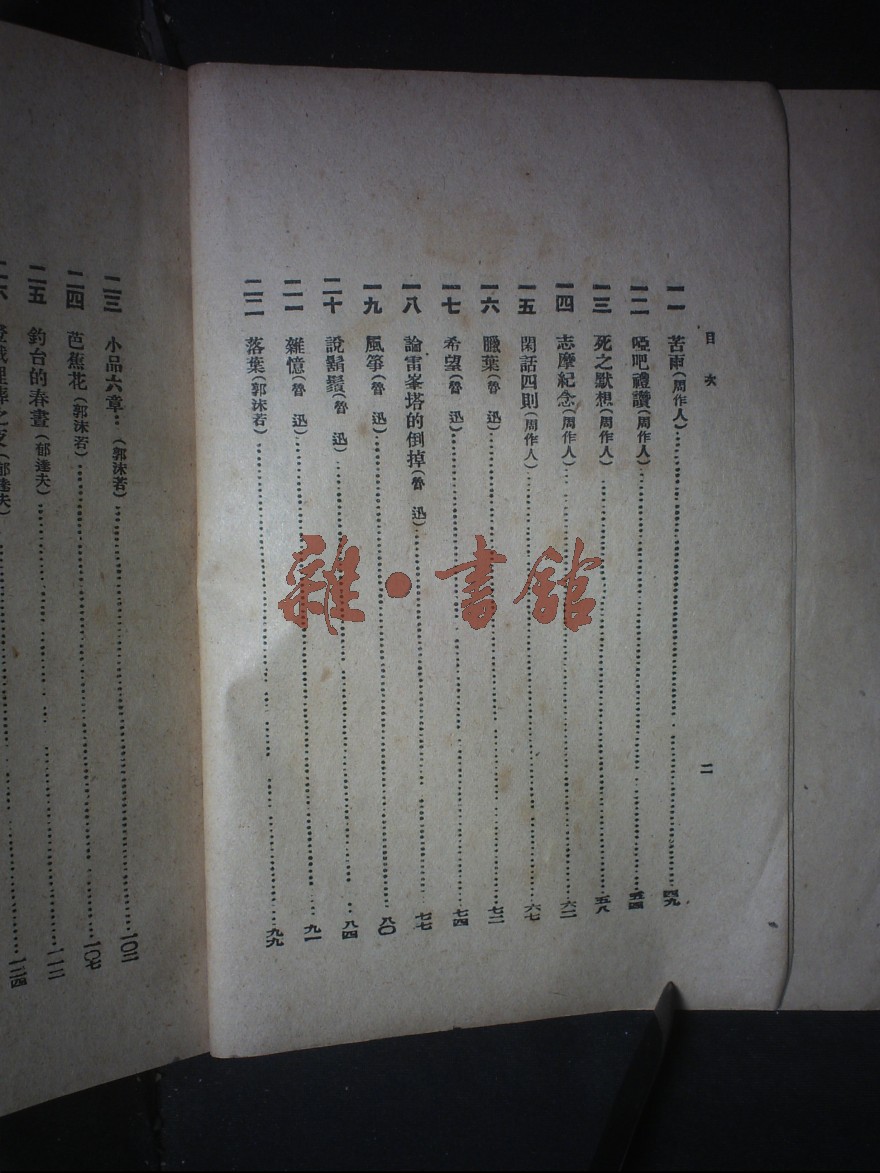 目次
二
一一 苦雨(周作人)四九
一二 啞吧禮讚(周作人)五四
一三 死之默想(周作人)五八
一四 志摩紀念(周作人)六二
一五 閑話四則(周作人)六七
一六 臘葉(魯迅)七二
一七 希望(魯迅)七四
一八 論雷峯塔的倒掉(魯迅)七七
一九 風箏(魯迅)八〇
二十 說鬍鬚(魯迅)八四
二一 雜憶(魯迅)九一
二二 落葉(郭沫若)九九
二三 小品六章(郭沫若)一〇二
二四 芭蕉花(郭沫若)一〇七
二五 釣台的春晝(郁達夫)一一二
二六 之夜(郁達夫)一二四
雜·書館